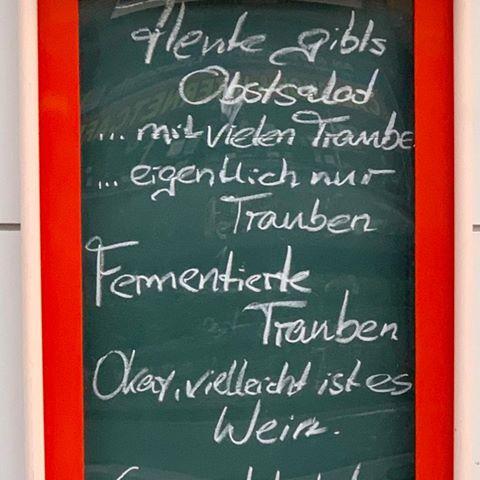 Heute gibts
Obstsalat
... mit vielen Traube
... eigentlich nur
Trauben
Fermentierte
Trauben
Okay, vielleicht ist es
Wein.